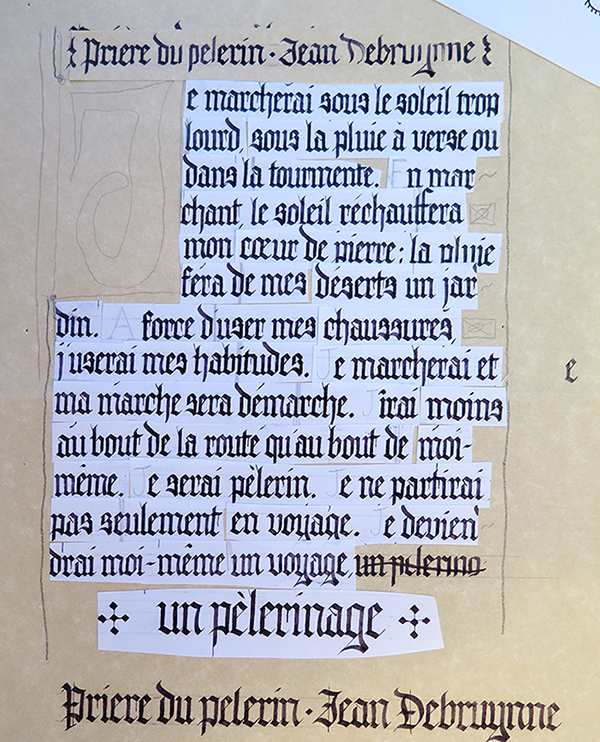 Prière du pelerin · Jean Debruynne
Je marcherai sous le soleil trop
lourd, sous la pluie à verse ou
dans la tourmente. En mar~
chant, le soleil réchauffera
mon cœur de pierre; la pluie
fera de mes déserts un jar~
din. A force d'user mes chaussures,
j'userai mes habitudes. Je marcherai et
ma marche sera démarche. J'irai moins
au bout de la route qu'au bout de moi-
même. Je serai pèlerin. Je ne partirai
pas seulement en voyage. Je devien~
drai moi-même un voyage, un pelerina
un pèlerinage
Priere du pelerin · Jean Debruynne
e